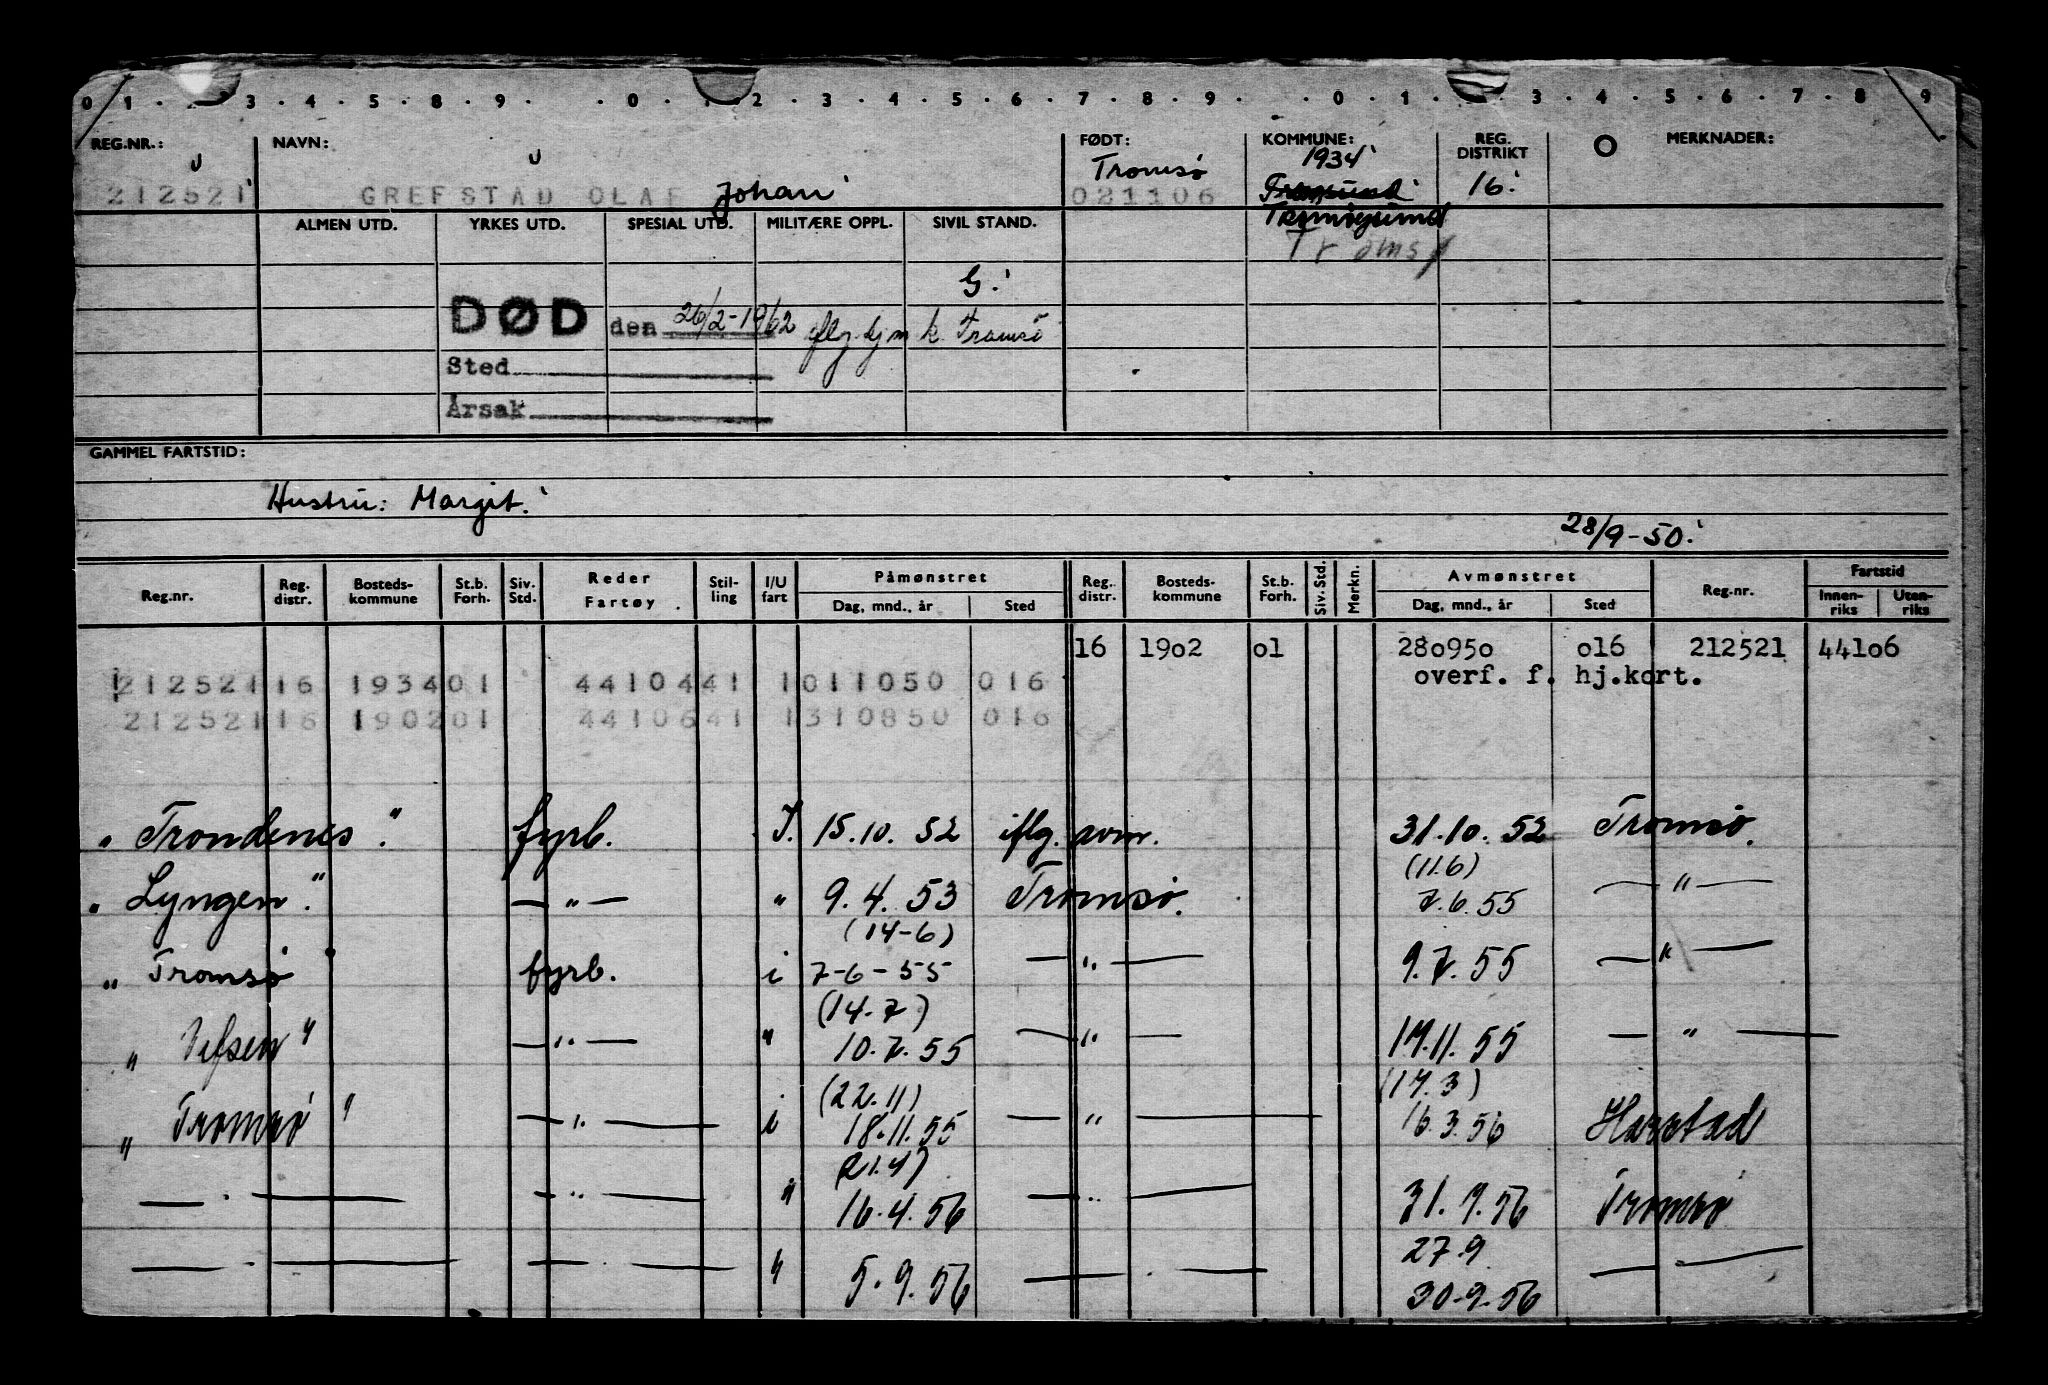 0 1 . 3 . 4 . 5 . 8 . 9 . . 0 . 2 . 3 . 4 . 5 . 6 . 7 . 8 . 9 . . 0 . 1 . 3 . 4 . 5 . 6 . 7 . 8 . 9
REG.NR.: NAVN: FØDT: KOMMUNE: REG. DISTRIKT O MERKNADER:
212521 GREFSTAD OLAF Johan Tromsø 021106 1934 16
Tromsøysund
Tromsø
ALMEN UTD. YRKES UTD. SPESIAL UTD. MILITÆRE OPPL. SIVIL STAND.
G.
DØD den 26/2-1962 iflg. hjm k. Tromsø
Sted
Årsak
GAMMEL FARTSTID:
Hustru: Margit.
28/9-50.
Reg.nr. Reg. distr. Bosteds- kommune St.b. Forh. Siv. Std. Reder Fartøy Stil- ling I/U fart Påmønstret Dag, mnd., år Sted Reg. distr. Bosteds- kommune St.b. Forh. Siv. Std. Merkn. Avmønstret Dag, mnd., år Sted Reg.nr. Fartstid Innen- riks Uten- riks
16 1902 01 280950 016 212521 44106
212521 16 1934 01 44104 41 1 011050 016 overf. f. hj.kort.
212521 16 1902 01 44106 41 1 310850 016
" Trondenes " fyrb. I. 15.10.52 iflg. avm. 31.10.52 Tromsø.
(11.6)
" Lyngen " — " — " 9.4.53 Tromsø. 7.6.55 — " —
(14-6)
" Tromsø fyrb. i 7-6-55 — " — 9.7.55 — " —
(14-7)
" Vefsen " — " — " 10.7.55 — " — 17.11.55 — " —
(22.11) (17.3)
" Tromsø " — " — i 18.11.55 — " — 16.3.56 Harstad
(21.4)
— " — — " — " 16.4.56 — " — 31.9.56 Tromsø
27.9
— " — — " — " 5.9.56 — " — 30.9.56 — " —